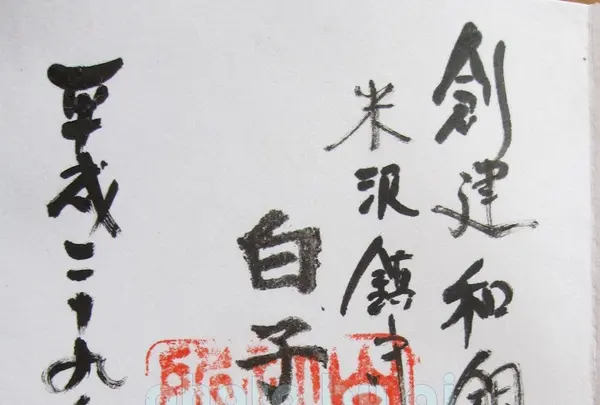 創建和銅
米沢鎮守
白子
平成二十九年